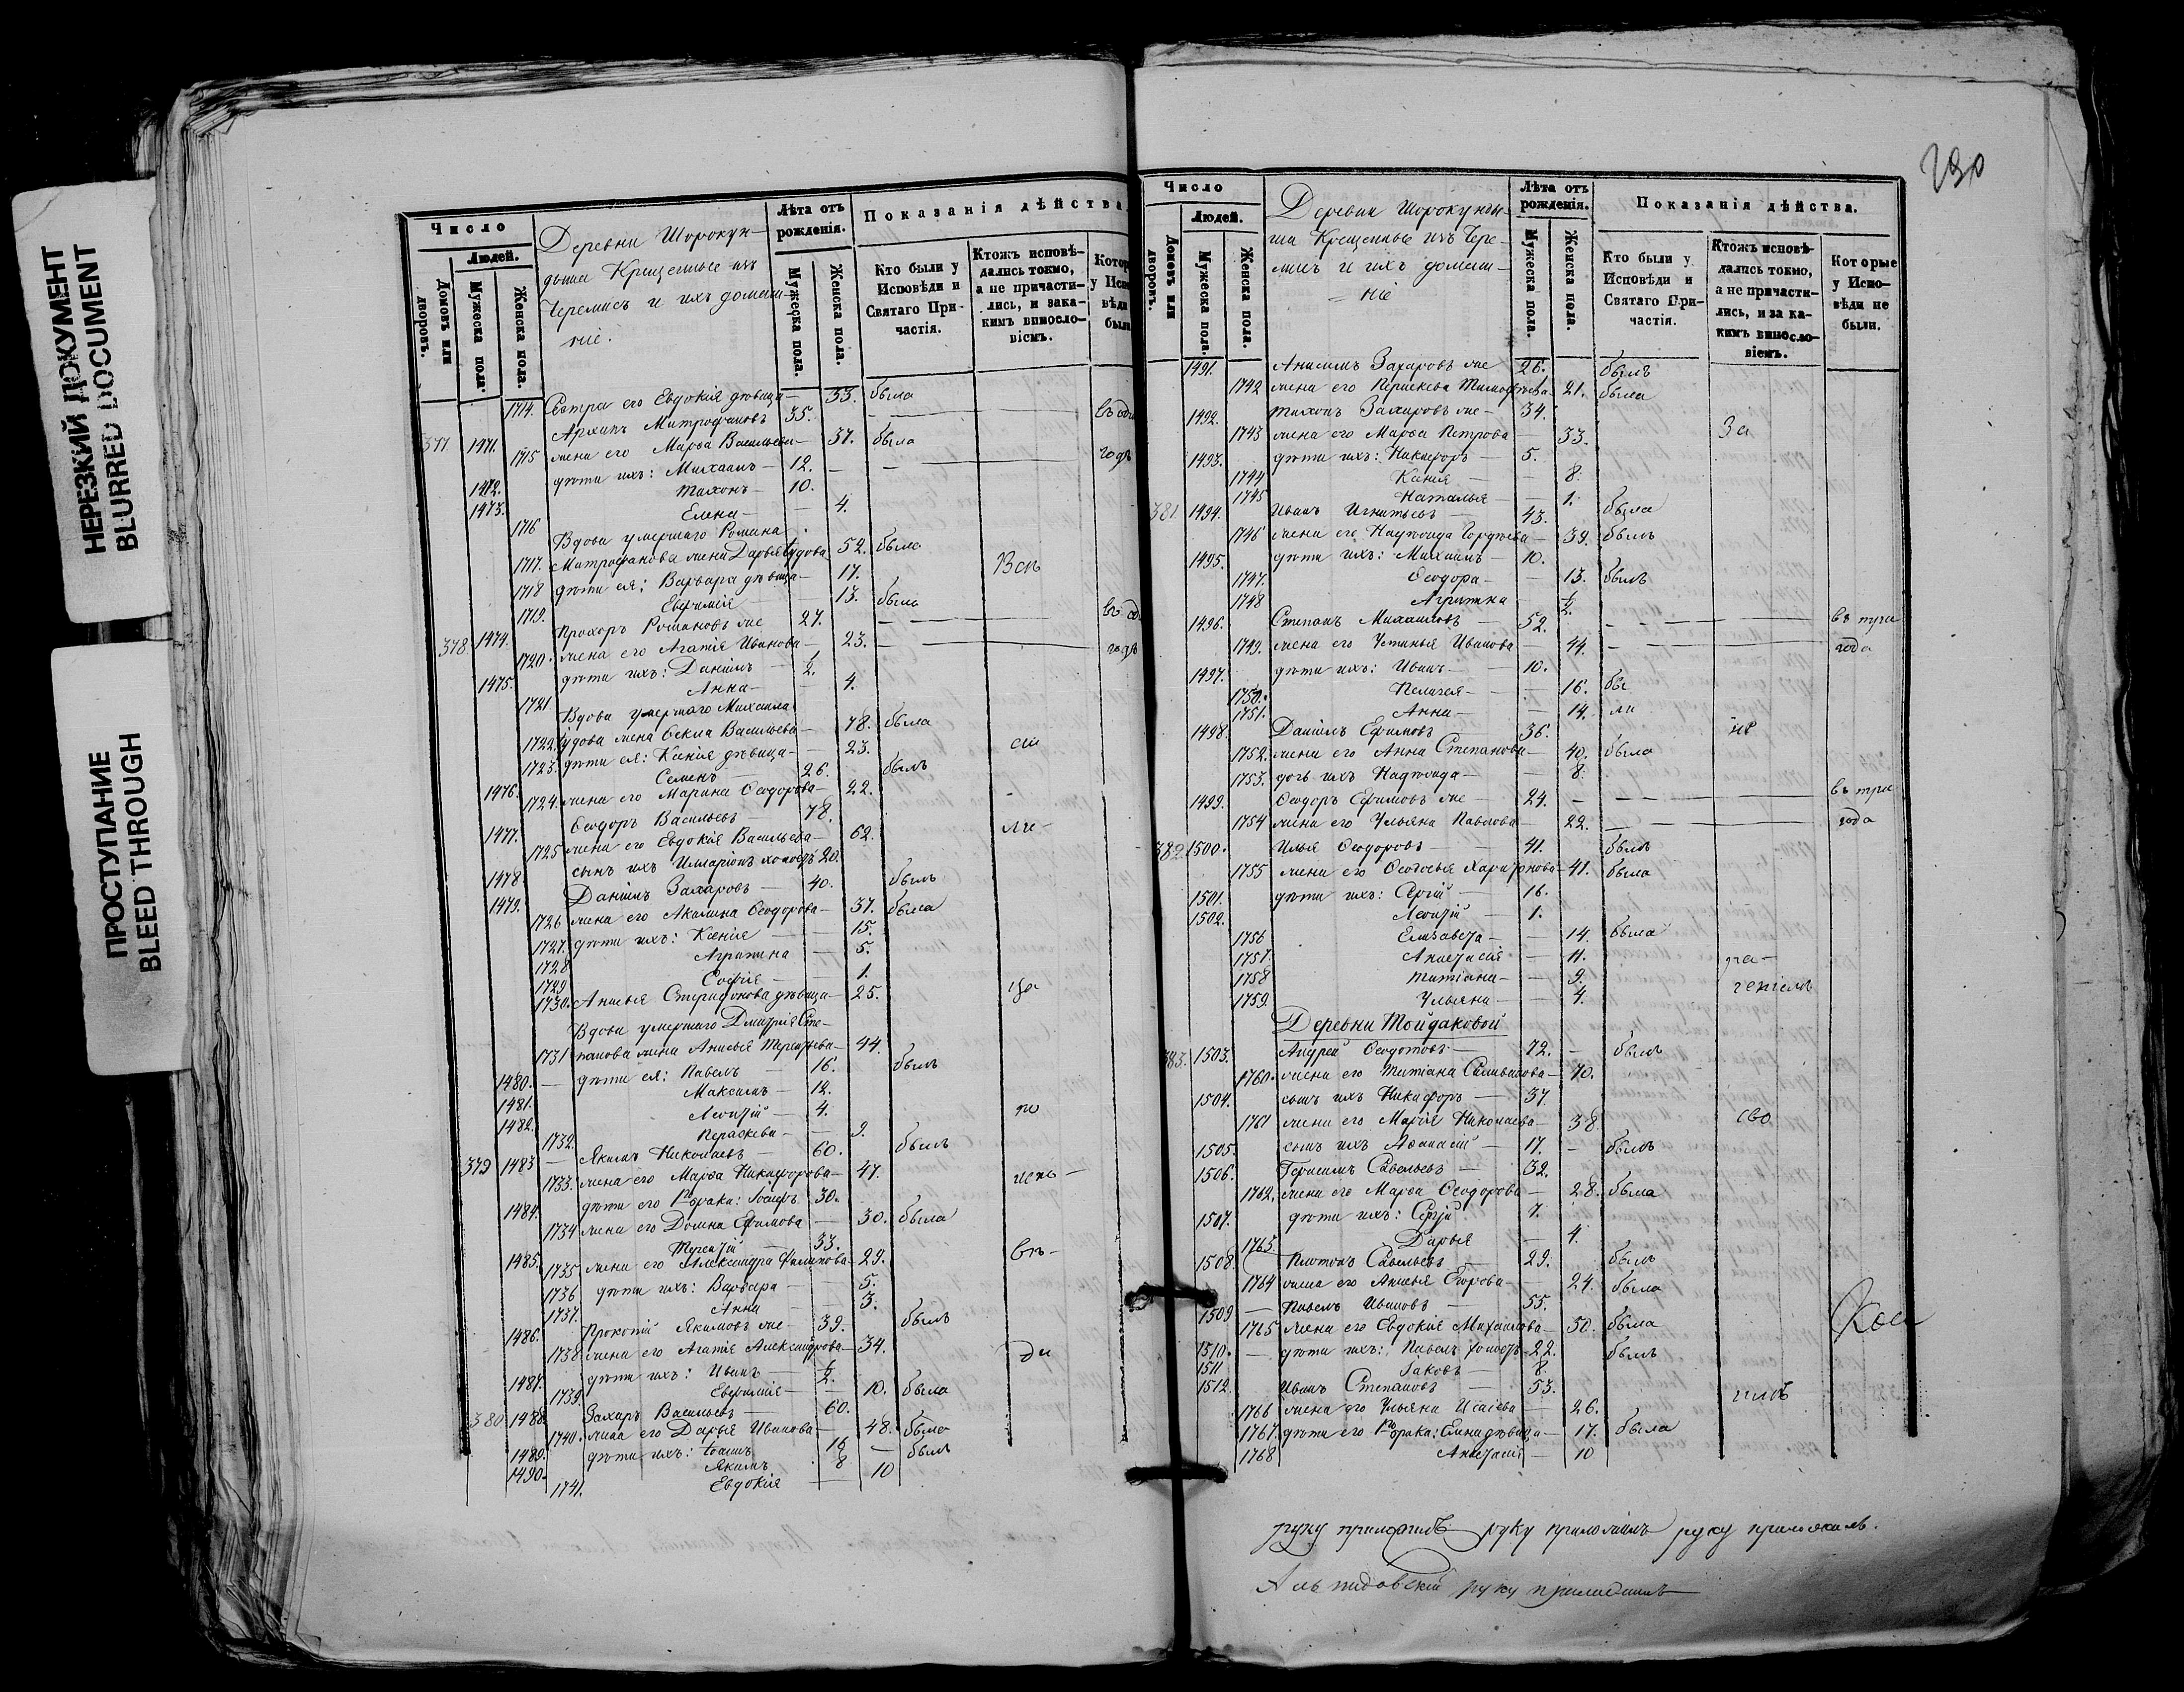 НЕРЕЗКИЙ ДОКУМЕНТ
BLURRED DOCUMENT
ПРОСТУПАНИЕ
BLEED THROUGH
Число
Людей.
Домовъ или дворовъ.
Мужеска пола.
Женска пола.
Деревни Шорокун-
дыша Крещенные изъ
Черемисъ и ихъ домаш-
ніе.
Лѣта отъ рожденія.
Мужеска пола.
Женска пола.
Показанія дѣйства
Кто были у Исповѣди и Святаго При-частія.
Ктожъ исповѣ-дались токмо, а не причасти-лись, и за ка-кимъ винословіемъ.
1714. Сестра его Евдокія дѣвица — 33. была
377 1471. Архипъ Митрофановъ 35. — въ од
1715 жена его Марѳа Васильева — 37. была
1472. дѣти ихъ: Михаилъ — 12. — годъ
1473. Тихонъ — 10.
1716 Елена — 4.
Вдова умершаго Романа
1717. Митрофанова жена Дарья 52. была
1718 дѣти ея: Варвара дѣвица — 17.
1719. Евфимія 13. была
378 1474. Прохоръ Романовъ же 27. —
1720. жена его Агаѳія Иванова — 23. — годъ
1475. дѣти ихъ: Даніилъ — ½.
1721 Анна — 4.
Вдова умершаго Михаила
1722. жена Ѳекла Васильева — 78. была
1723. дѣти ея: Ксенія дѣвица — 23.
1476. Семенъ — 26. былъ
1724. жена его Марина Ѳеодорова — 22.
1477. Ѳеодоръ Васильевъ — 78.
1725 жена его Евдокія Васильева — 62.
1478. сынъ ихъ Илларіонъ холостъ 20.
1479. Даніилъ Захаровъ — 40. былъ
1726 жена его Акилина Ѳеодорова — 37. была
1727. дѣти ихъ: Ксенія — 15.
1728 Агрипина — 5.
1729 Софія — 1.
1730. Анисья дѣвица — 25.
Вдова умершаго Дмитрія Сте-
1731 панова жена Анисья Терентьева — 44.
1480. — дѣти ея: Павелъ — 16. былъ
1481. Максимъ — 12.
1482. Леонтій — 4.
1732. Параскева — 9.
379 1483 — Якимъ Николаевъ — 60. былъ
1733. жена его Марѳа Никифорова — 47.
1484. дѣти его 1го брака: Іосифъ 30.
1734 жена его Домна Ефимова — 30. была
1485. Терентій — 33.
1735 жена его Александра Филипова — 29.
1736 дѣти ихъ: Варвара — 5.
1737. Анна — 3.
1486. Прокопій Якимовъ же — 39. былъ
1738 жена его Агаѳія Александрова — 34.
1487. дѣти ихъ: Иванъ — ½.
1739. Евфимія — 10. была
380 1488 Захаръ Васильевъ — 60.
1740. жена его Дарья Иванова — 48. была
1489. дѣти ихъ: 18 — былъ
1490. Якимъ 8
1741. Евдокія — 10
Число
Людей.
Домовъ или дворовъ.
Мужеска пола.
Женска пола.
Деревни Шорокунды-
ша Крещенные изъ Чере-
мисъ и ихъ домаш-
ніе
Лѣта отъ рожденія.
Мужеска пола.
Женска пола.
Показанія дѣйства.
Кто были у Исповѣди и Святаго При-частія.
Ктожъ исповѣ-дались токмо, а не причасти-лись, и за ка-кимъ винословіемъ.
Которые у Испо-вѣди не были.
1491. Анисимъ Захаровъ же 26. былъ
1742 жена его Параскева Тимофѣева — 21. была
1492. Тихонъ Захаровъ же — 34.
1743 жена его Марѳа Петрова — 33. За
1493. дѣти ихъ: Никифоръ — 5.
1744 Ксенія — 8.
1745 Наталья — 1.
381 1494. Иванъ Игнатьевъ — 43. была
1746 жена его Надежда Гордѣева — 39. былъ
1495. дѣти ихъ: Михаилъ — 10.
1747. Ѳеодора — 13. былъ
1748 Агрипина ½.
1496. Степанъ Михаиловъ — 52. — въ три
1749. жена его Устинья Иванова — 44. — года
1497. дѣти ихъ: Иванъ — 10.
1750. Пелагея — 16. бы
1751. Анна — 14. ли
1498. Даніилъ Ефимовъ — 36. не
1752. жена его Анна Степанова — 40. была
1753. дочь ихъ Надежда — 8.
1499. Ѳеодоръ Ефимовъ же — 24. — въ три
1754 жена его Ульяна Павлова — 22. — года
382 1500. Илья Ѳеодоровъ — 41. былъ
1755 жена его Ѳеодосья Харитонова — 41. была
1501. дѣти ихъ: Сергій — 16.
1502. Леонтій — 1.
1756 Елизавета — 14. была
1757. Анастасія — 11. ра-
1758 Татіана — 9. ченіемъ
1759. Ульяна — 4.
Деревни Тойдаковой
383. 1503. Андрей Ѳедотовъ — 72. — былъ
1760. жена его Татіана Сильванова — 70.
1504. сынъ ихъ Никифоръ — 37.
1761 жена его Марія Николаева — 38 сво
1505. сынъ ихъ Аѳанасій — 17. — былъ
1506. Герасимъ Савельевъ — 32.
1762. жена его Марѳа Ѳеодорова — 28. была
1507. дѣти ихъ: Сергій 7.
1763. Дарья — 4.
1508. Платонъ Савельевъ — 29. былъ
1764 жена его Анисья Егорова — 24. была
1509 — Павелъ Ивановъ — 55.
1765 жена его Евдокія Михаилова — 50. была
1510. — дѣти ихъ: Павелъ холостъ — 22. былъ
1511 Іаковъ — 8.
1512. Иванъ Степановъ — 53.
1766 жена его Ульяна Исаіева — 26.
1767. дѣти его 1го брака: Елена дѣвица — 17. была
1768 Анастасія — 10
руку приложилъ руку приложилъ руку приложилъ.
руку приложилъ